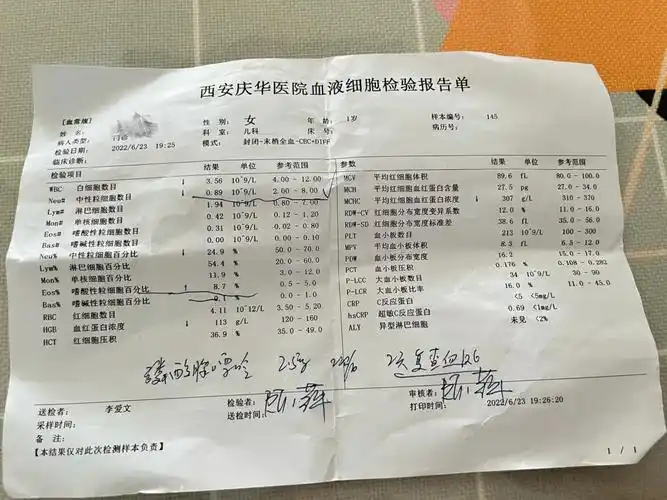 西安庆华医院血液细胞检验报告单
【血常规】
姓 名: 性 别: 女 年 龄: 1岁 样本编号: 145
病人类型: 门诊 科 室: 儿科 床 号: 病历号:
检验日期: 2022/6/23 19:25 模式: 封闭-末梢全血-CBC+DIFF
临床诊断:
检验项目 结果 单位 参考范围 参数 结果 单位 参考范围
WBC 白细胞数目 ↓ 3.56 10^9/L 4.00 - 12.00 MCV 平均红细胞体积 89.6 fL 80.0 - 100.0
Neu# 中性粒细胞数目 ↓ 0.89 10^9/L 2.00 - 8.00 MCH 平均红细胞血红蛋白含量 27.5 pg 27.0 - 34.0
Lym# 淋巴细胞数目 1.94 10^9/L 0.80 - 7.00 MCHC 平均红细胞血红蛋白浓度 ↓ 307 g/L 310 - 370
Mon# 单核细胞数目 0.42 10^9/L 0.12 - 1.20 RDW-CV 红细胞分布宽度变异系数 12.0 % 11.0 - 16.0
Eos# 嗜酸性粒细胞数目 0.31 10^9/L 0.02 - 0.80 RDW-SD 红细胞分布宽度标准差 38.6 fL 35.0 - 56.0
Bas# 嗜碱性粒细胞数目 0.00 10^9/L 0.00 - 0.10 PLT 血小板数目 213 10^9/L 100 - 300
Neu% 中性粒细胞百分比 ↓ 24.9 % 50.0 - 70.0 MPV 平均血小板体积 8.3 fL 6.5 - 12.0
Lym% 淋巴细胞百分比 54.4 % 20.0 - 60.0 PDW 血小板分布宽度 16.2 15.0 - 17.0
Mon% 单核细胞百分比 11.9 % 3.0 - 12.0 PCT 血小板压积 0.176 % 0.108 - 0.282
Eos% 嗜酸性粒细胞百分比 ↑ 8.7 % 0.5 - 5.0 P-LCC 大血小板数目 34 10^9/L 30 - 90
Bas% 嗜碱性粒细胞百分比 0.1 % 0.0 - 1.0 P-LCR 大血小板比率 16.0 % 11.0 - 45.0
RBC 红细胞数目 4.11 10^12/L 3.50 - 5.20 CRP C反应蛋白 <5 <5mg/L
HGB 血红蛋白浓度 ↓ 113 g/L 120 - 160 hsCRP 超敏C反应蛋白 0.69 <1mg/L
HCT 红细胞压积 36.9 % 35.0 - 49.0 ALY 异型淋巴细胞 未见 <2%
送检者: 李爱文 检验者: 审核者:
采样时间: 送检时间: 打印时间: 2022/6/23 19:26:20
备 注:
【本结果仅对此次检测样本负责】 1 / 1